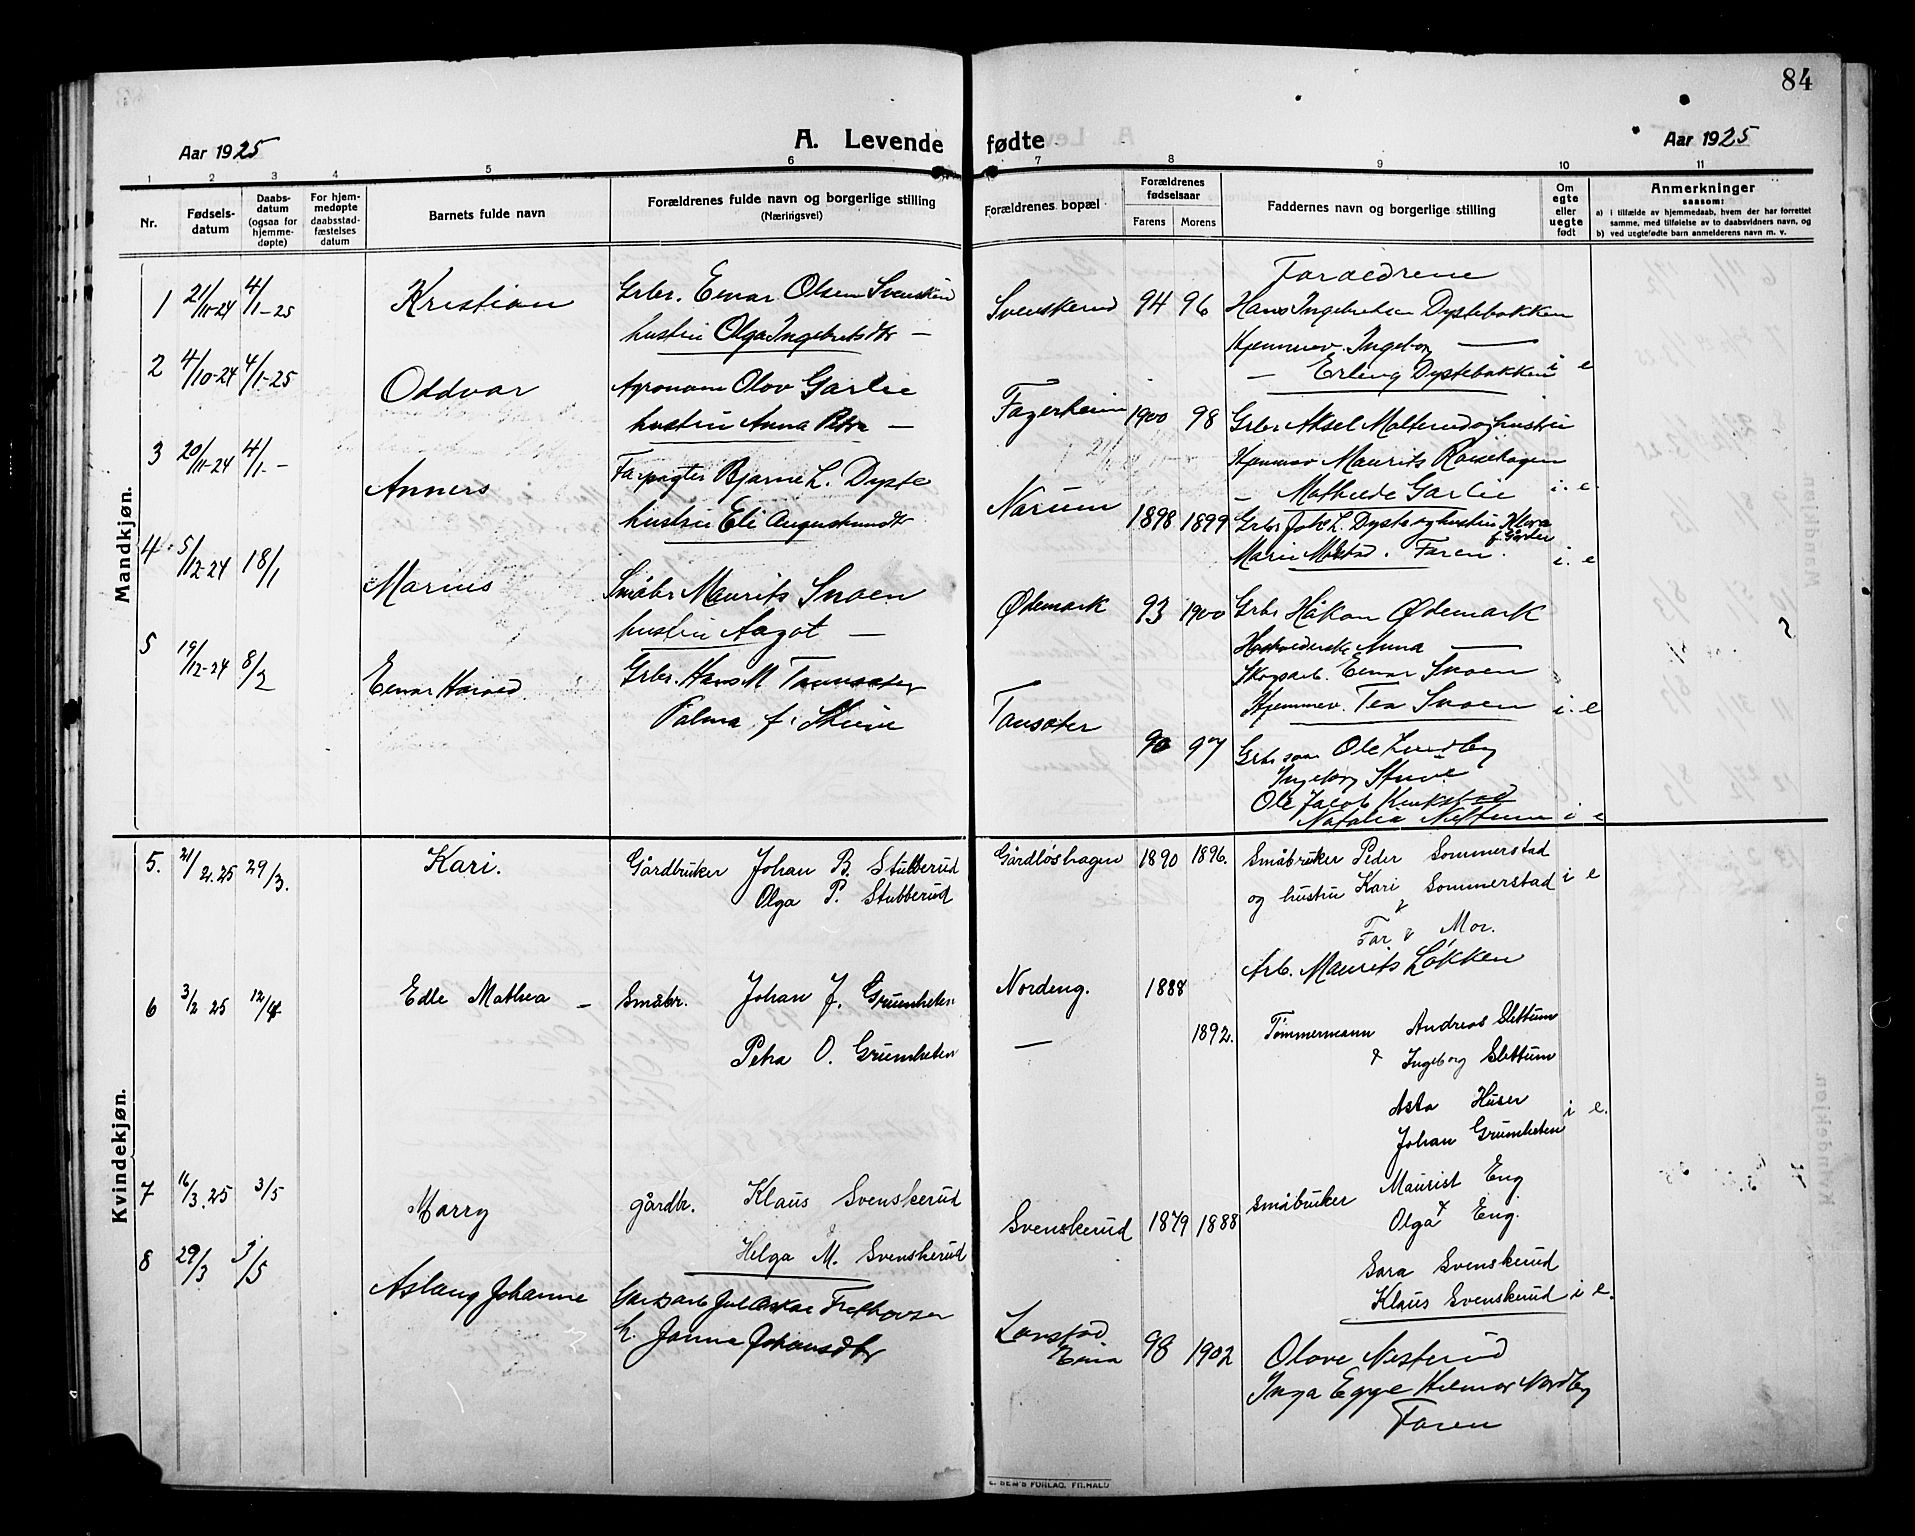 84
Aar 1925
A. Levende fødte
Aar 1925
1 2 3 4 5 6 7 8 9 10 11
Nr.
Fødsels-
datum
Daabs-
datum
(ogsaa for
hjemme-
døpte)
For hjem-
medøpte
daabsstad-
fæstelses
datum
Barnets fulde navn
Forældrenes fulde navn og borgerlige stilling
(Næringsvei)
Forældrenes bopæl
Forældrenes
fødselsaar
Farens Morens
Faddernes navn og borgerlige stilling
Om
egte
eller
uegte
født
Anmerkninger
saasom:
a) i tilfælde av hjemmedaab, hvem der har forrettet
samme, med tilføielse av to daabsvidners navn, og
b) ved uegtefødte barn anmelderens navn m. v.
Mandkjøn.
1 21/11-24 4/1-25 Kristian
Grbr. Einar Olsen Svensker
hustru Olga Ingebretsdtr —
Svenskerud 94 96
Foraedrene
Hans Ingebretsen Dystebakken
Hjemmev. Ingeborg —
— Erling Dystebakken i e
2 4/10-24 4/1-25 Oddvar
Agronom Olov Garlie
hustru Anna Petra —
Fagerheim 1900 98
Grbr Aksel Molterud og hustru
Hjemmev Maurits
— Mathilde Garlie i. e.
3 20/11-24 4/1- Anners
Forpagter Bjarne L. Dyste
hustru Eli Augustsundtr
Narum 1898 1899
Grbr Joh. L. Dyste og hustru
Marie Molstad. Faren. i. e
4. 5/12-24 18/1 Marius
Småbr Maurits Snoen
hustru Aagot —
Ødemark 93 1900
Grbr Håkon Ødemark
Anna —
Skogsarb. Einar Snoen
Hjemmev. Tea Snoen i. e
5 19/12-24 8/2 Einar Harald
Grbr. Hans M Tausater
Palma f. Stuve
Tausater 90 97
Grbr Ole Lundby
Ingeborg Stuve
Ole Jacob
Natalia i e
Kvindekjøn.
5. 21/2.25 29/3. Kari.
Gårdbruker Johan B. Stubberud
Olga P. Stubberud
Gårdløshagen 1890 1896.
Småbruker Peder Sommerstad
og hustru Kari Sommerstad i e
&
Far & Mor.
Arb. Maurits Løkken
6 3/2 25 12/4 Edle Mathea —
Småbr. Johan J. Grumheten
Petra O. Grumheten
Nordeng. 1888
— 1892.
Tømmermann Andreas Slettum
& Ingeborg Slettum
Asta Huser i e.
Johan Grumheten
7 16/3.25 3/5 Marry
gårdbr. Klaus Svenskerud
&
Helga M. Svenskerud
Svenskerud 1879 1888
småbruker Maurist Eng
&
Olga Eng.
Sara Svenskerud
Klaus Svenskerud i e.
8 29/3 3/5 Aslaug Johanne
h. Janna Johansdtr
Eina 98 1902
Olave Nesterud
Inga Egge Hilmar Nordby
Faren